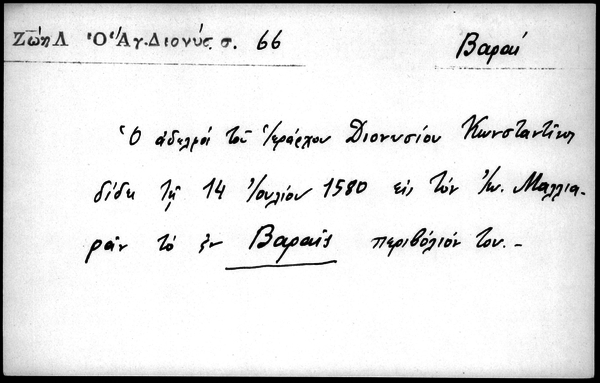 Ζώη Λ Ὁ Ἅγ. Διονύς. σ. 66
Βαραί
Ὁ ἀδελφὸς τοῦ Ἱεράρχου Διονυσίου Κωνσταντῖνος
δίδει τῇ 14 Ἰουλίου 1580 εἰς τὸν Ἰω. Μαλλια-
ρὰν τὸ ἐν Βαραῖς περιβόλιόν του. -